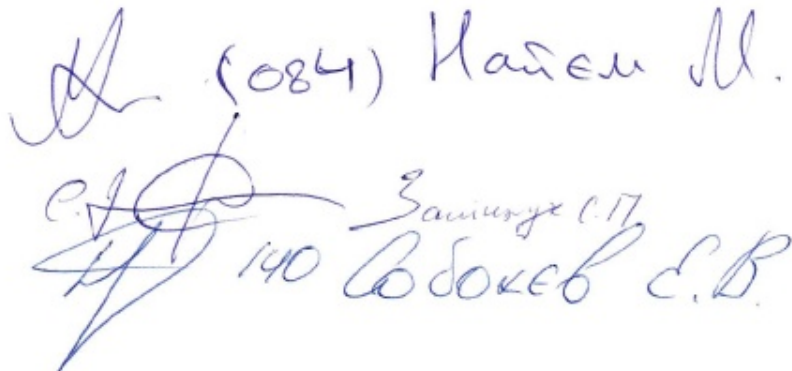 (084) Найєм М.
Заліщук С.П
140 Соболєв Є.В.